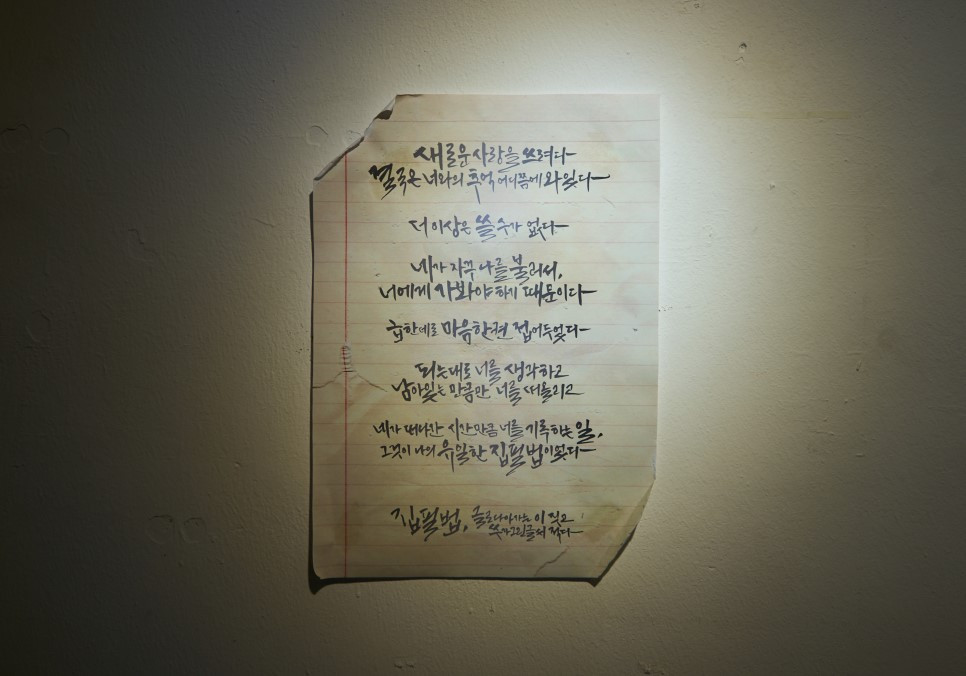 새로운 사랑을 쓰려다
결국은 너와의 추억 어디쯤에 와있다
더 이상은 쓸 수가 없다
네가 자꾸 나를 불러서,
너에게 가봐야 하기 때문이다
급한대로 마음 한편 접어두었다
되는대로 너를 생각하고
남아있는 만큼만 너를 써올리고
네가 떠나간 시간만큼 너를 기록하는 일,
그것이 나의 유일한 집필법이었다
집필법, 글로 나아가는 이 짓고
쓰다